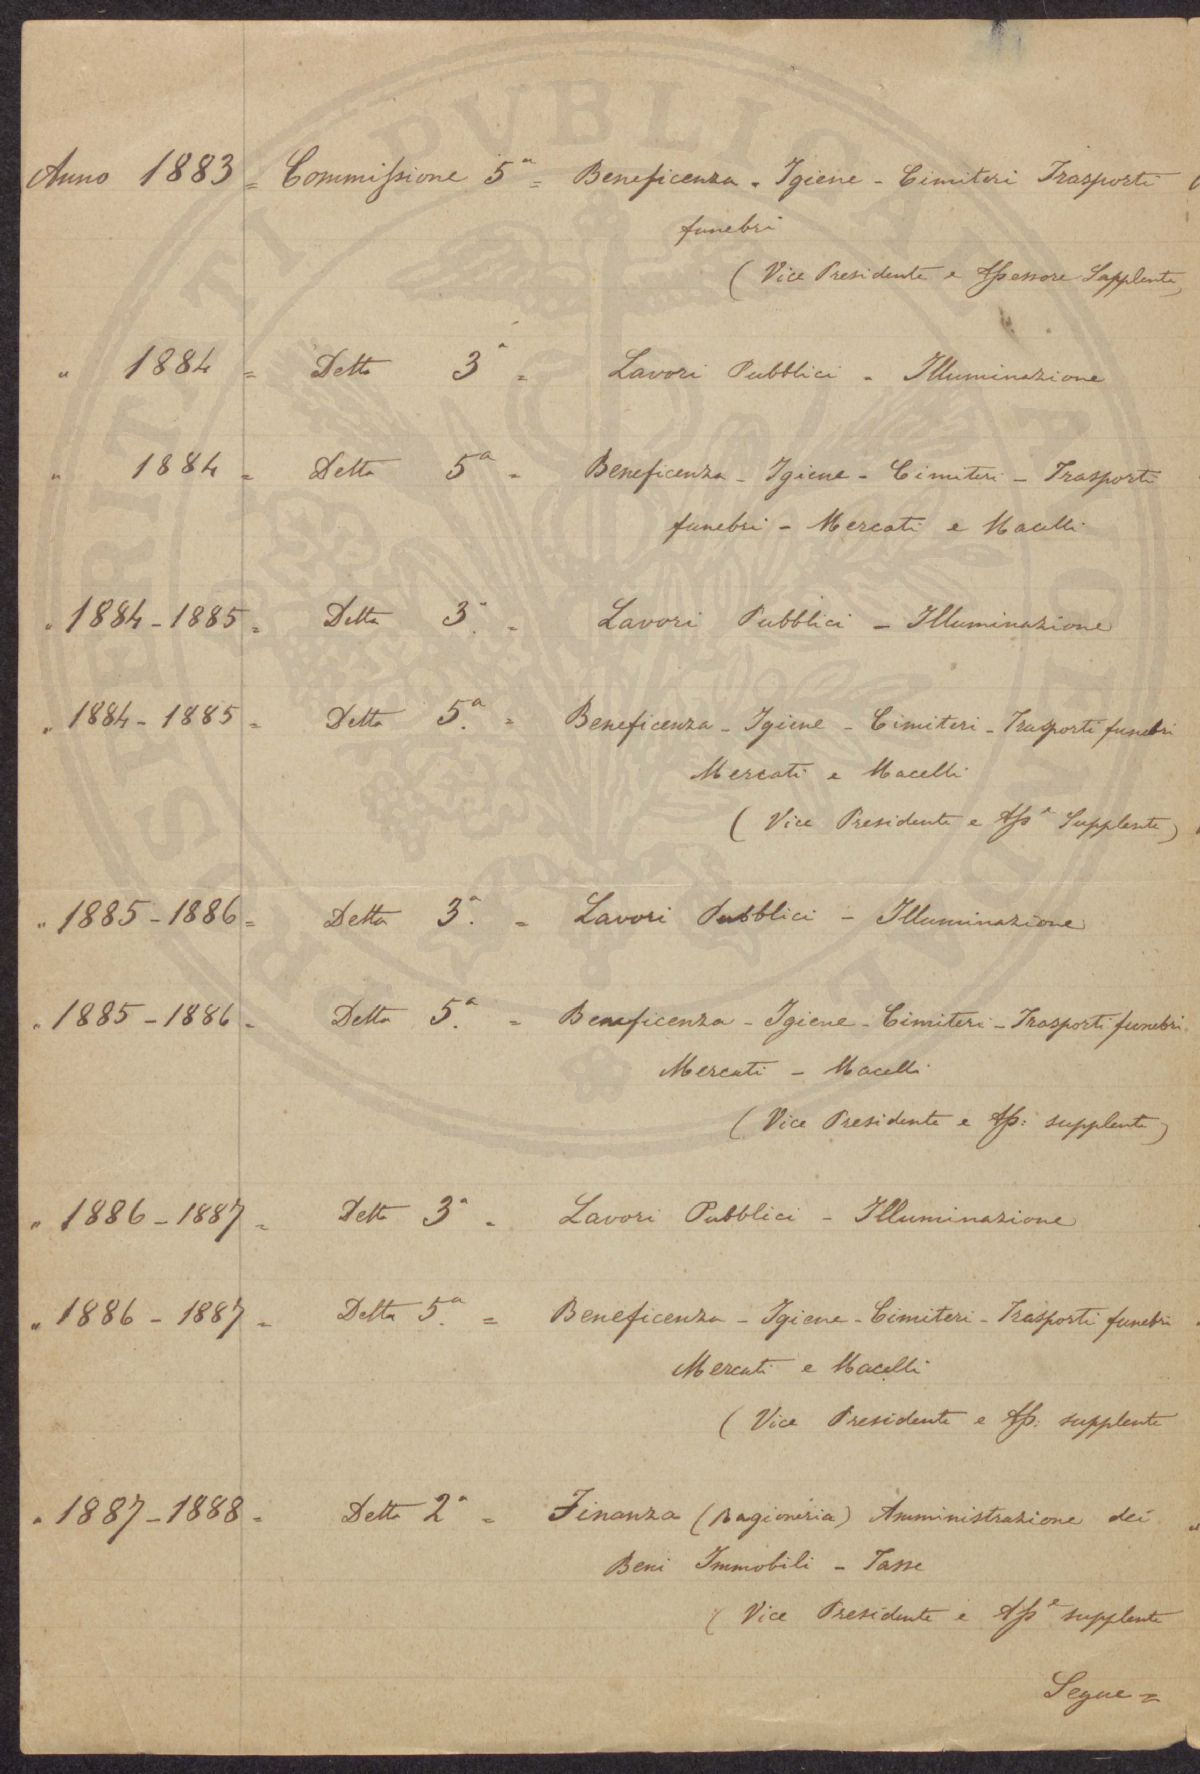 Anno 1883 = Commissione 5ª = Beneficenza - Igiene - Cimiteri Trasporti
funebri
( Vice Presidente e Assessore Supplente)
" 1884 = Detta 3ª = Lavori Pubblici - Illuminazione
" 1884 = Detta 5ª = Beneficenza - Igiene - Cimiteri - Trasporti
funebri - Mercati e Macelli
" 1884-1885 = Detta 3ª = Lavori Pubblici - Illuminazione
" 1884-1885 = Detta 5ª = Beneficenza - Igiene - Cimiteri - Trasporti funebri
Mercati e Macelli
( Vice Presidente e Assᵉ Supplente)
" 1885-1886 = Detta 3ª = Lavori Pubblici - Illuminazione
" 1885-1886 = Detta 5ª = Beneficenza - Igiene - Cimiteri - Trasporti funebri
Mercati - Macelli
( Vice Presidente e Ass: supplente)
" 1886-1887 = Detta 3ª = Lavori Pubblici - Illuminazione
" 1886-1887 = Detta 5ª = Beneficenza - Igiene - Cimiteri - Trasporti funebri
Mercati e Macelli
( Vice Presidente e Ass: supplente
" 1887-1888 = Detta 2ª = Finanza (Ragioneria) Amministrazione dei
Beni Immobili - Tasse
( Vice Presidente e Assᵉ supplente
Segue =